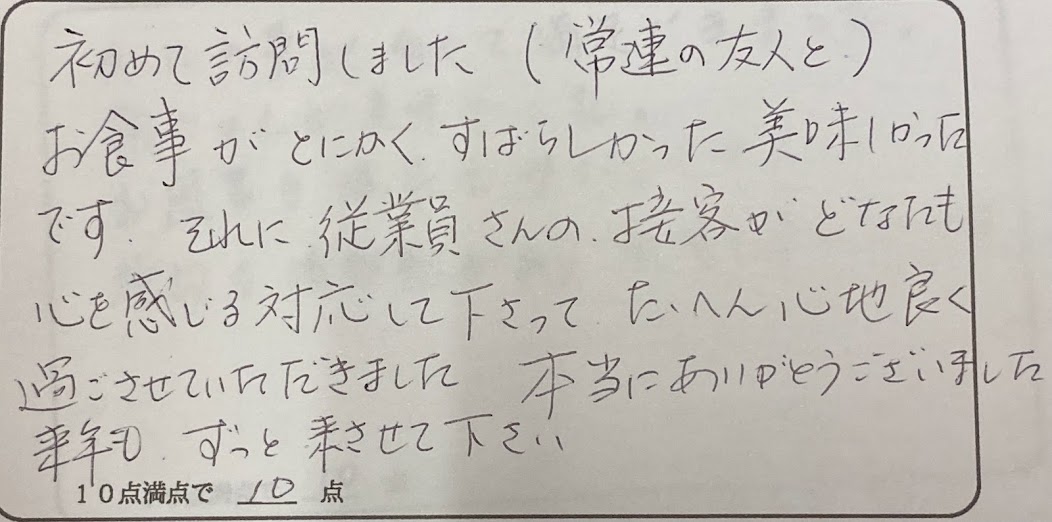 初めて訪問しました （常連の友人と）
お食事がとにかく、すばらしかった 美味しかった
です、それに従業員さんの、接客がどなたも
心を感じる対応して下さって たいへん心地良く
過ごさせていただきました 本当にありがとうございました
来年も、ずっと来させて下さい
10点満点で 10 点